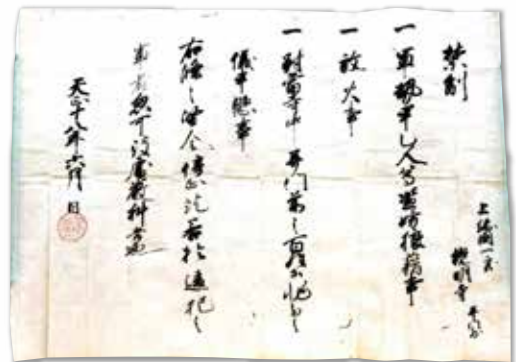 上総国一宮
観明寺
禁制
一軍勢甲乙人等濫妨狼藉事
一放火事
一対当寺中并門前之百姓非分之
儀申懸事
右條々御令停止訖若於違犯之
輩者忽可被處厳科者也
天正十八年六月 日